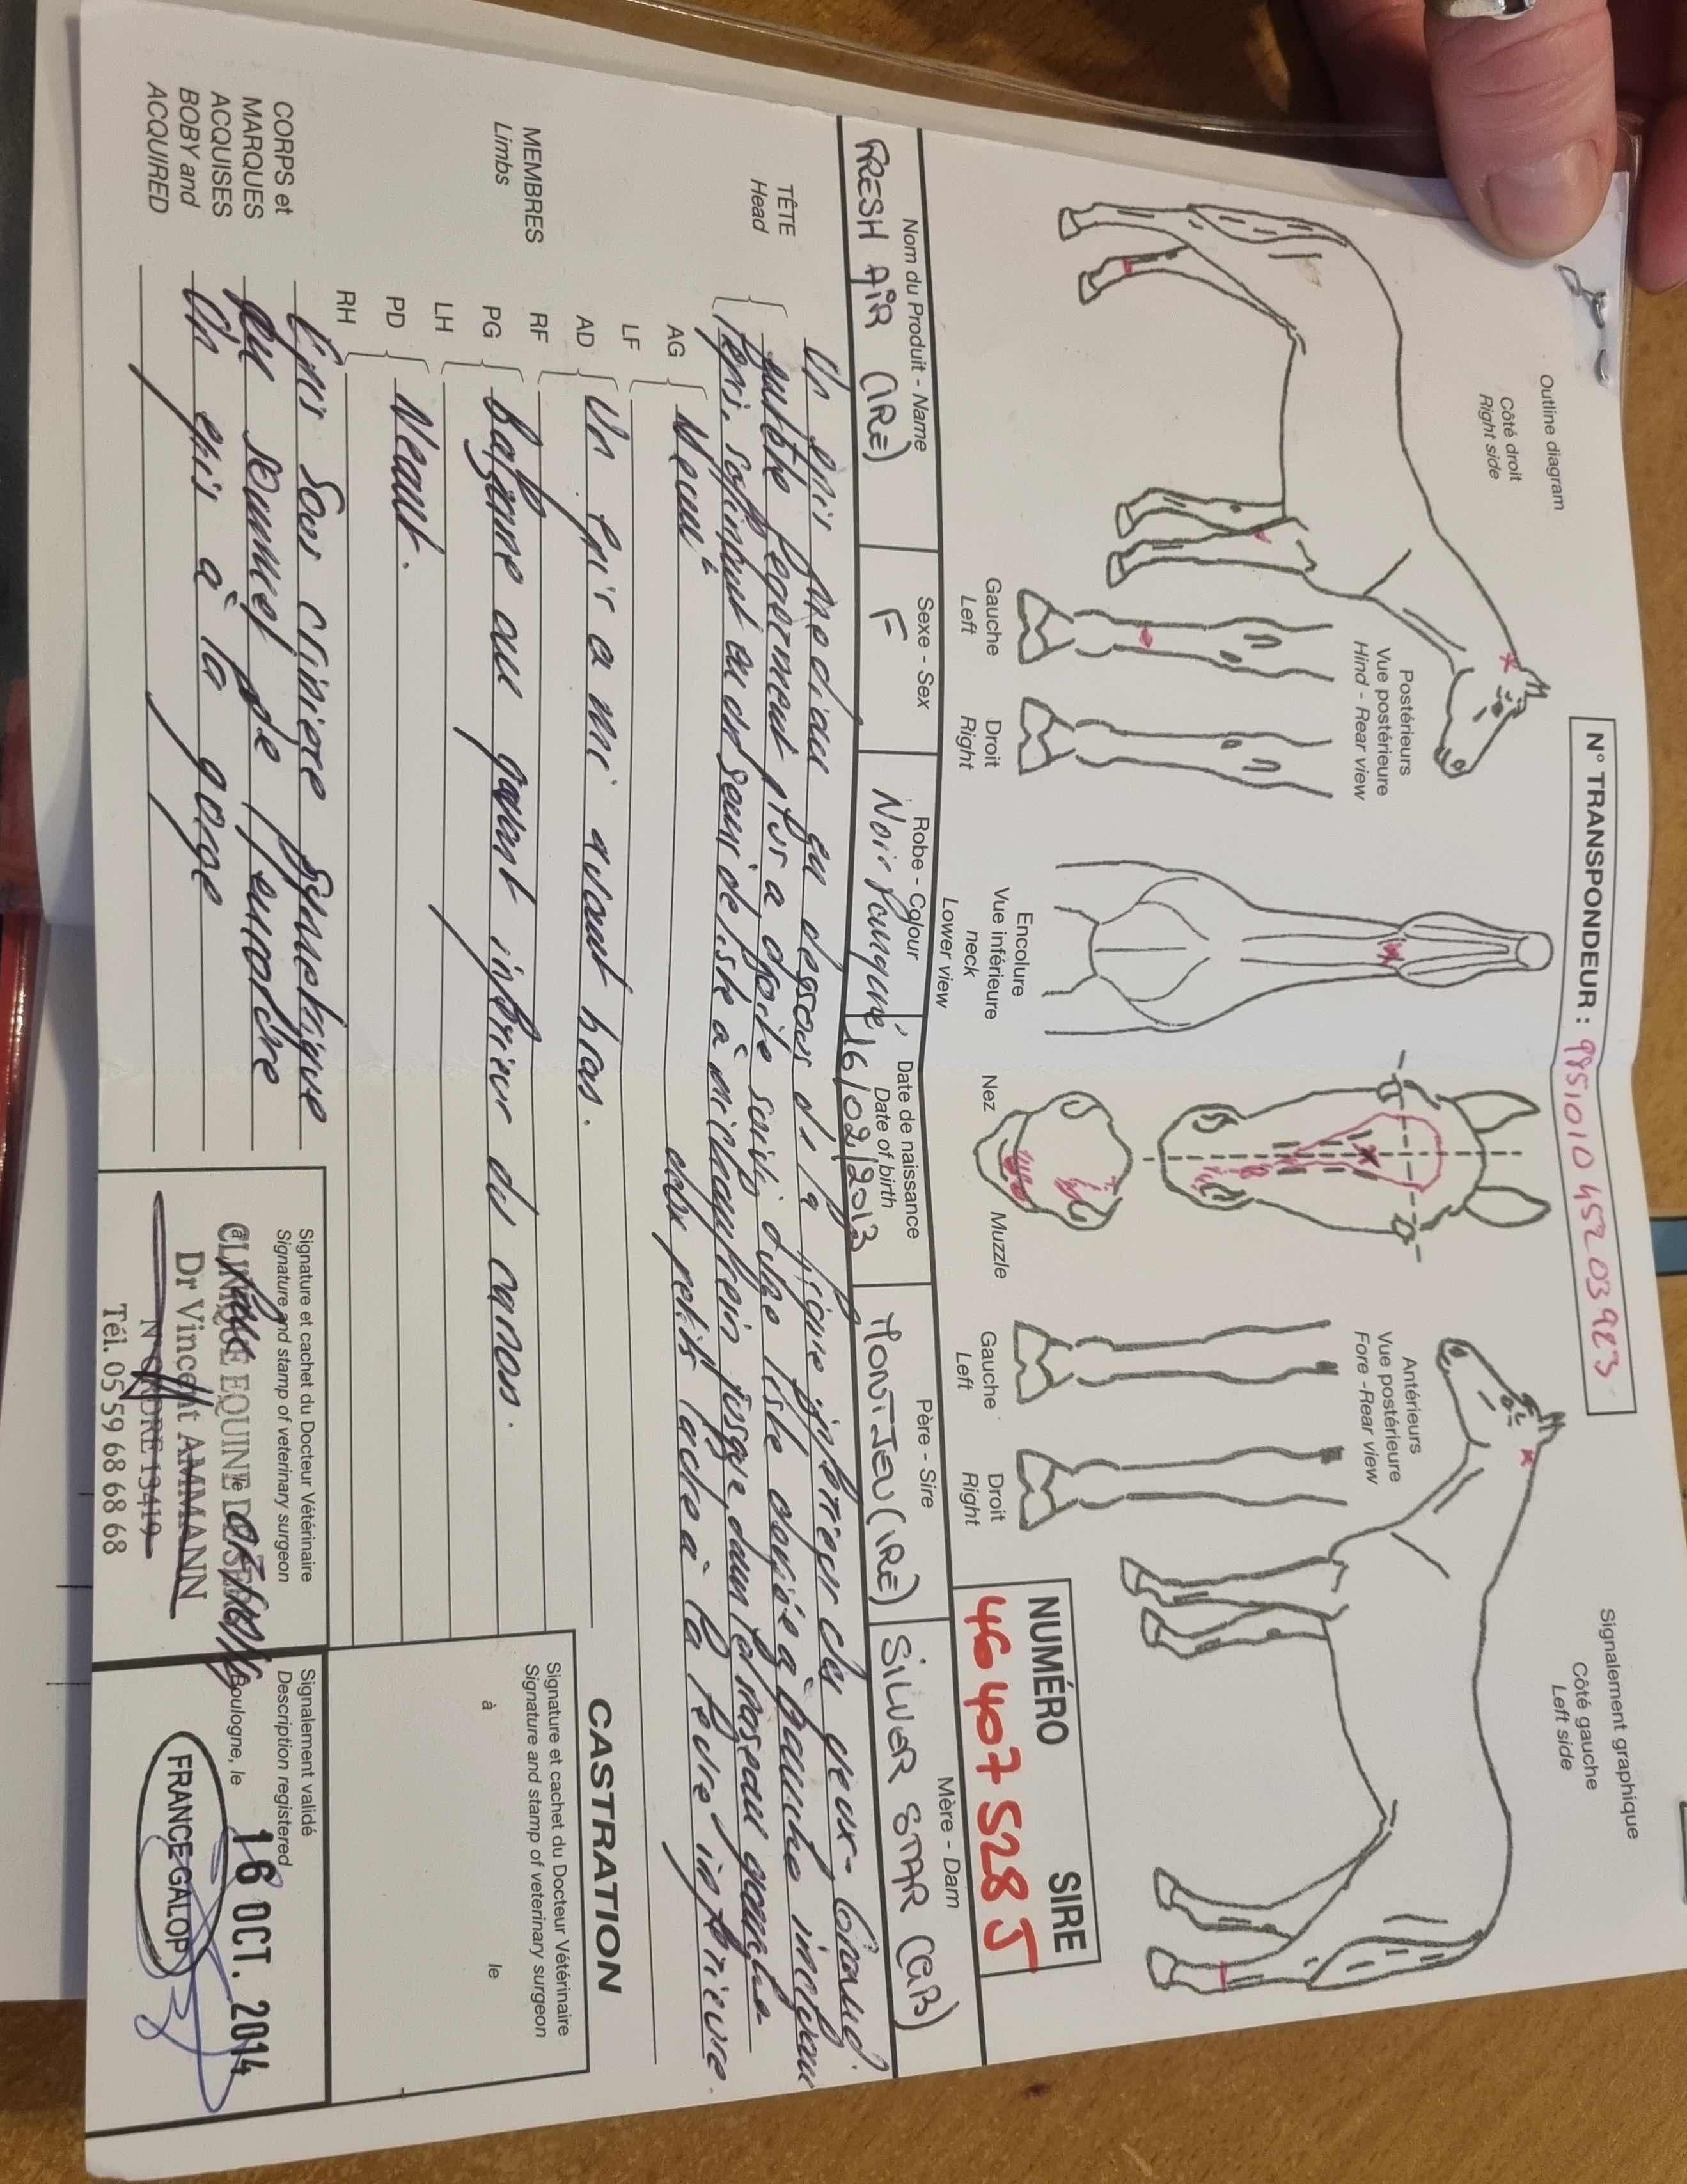 N° TRANSPONDEUR : 985101045203923
Outline diagram
Côté droit
Right side
Postérieurs
Vue postérieure
Hind - Rear view
Gauche
Left
Droit
Right
Encolure
Vue inférieure
neck
Lower view
Nez
Muzzle
Antérieurs
Vue postérieure
Fore -Rear view
Gauche
Left
Droit
Right
Signalement graphique
Côté gauche
Left side
NUMÉRO SIRE
46 407 528 J
Nom du Produit - Name
FRESH AIR (IRE)
Sexe - Sex
F
Robe - Colour
Noir Pangaré
Date de naissance
Date of birth
16/02/2013
Père - Sire
MONTJEU (IRE)
Mère - Dam
SILVER STAR (GB)
TÊTE
Head
Un épi médian en dessous de la ligne inférieure des yeux. Grand
en tête fortement à droite suivi d'une liste déviée à gauche incluant
l'épi, jusque dans le naseau gauche.
deux petits ladre à la lèvre inférieure.
MEMBRES
Limbs
AG
LF
Néant
AD
RF
Un épi a mi avant bras.
PG
LH
Balzane au quart inférieur du canon.
PD
RH
Neant.
CORPS et
MARQUES
ACQUISES
BOBY and
ACQUIRED
Epis sous crinière symétrique
au sommet de l'encolure
Un epis à la gorge
CASTRATION
Signature et cachet du Docteur Vétérinaire
Signature and stamp of veterinary surgeon
à
le
Signature et cachet du Docteur Vétérinaire
Signature and stamp of veterinary surgeon
à
le
CLINIQUE EQUINE
Dr Vincent AMMANN
N° ORDRE 13419
Tél. 05 59 68 68 68
Signalement validé
Description registered
Boulogne, le
16 OCT. 2014
FRANCE GALOP